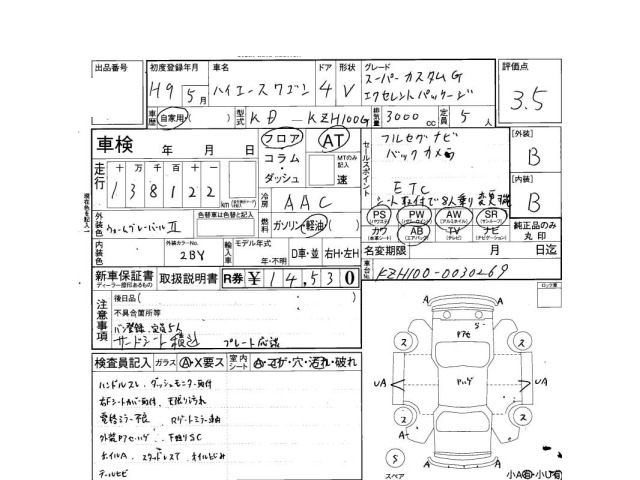 出品番号 初度登録年月 車名 ドア 形状 グレード 評価点
H9 5月 ハイエースワゴン 4 V スーパーカスタムG
エクセレントパッケージ 3.5
車歴 自家用・( ) 型式 KD-KZH100G 排気量 3000cc 定員 5人
車検 年 月 日 フロア AT
コラム・ダッシュ MTのみ記入 速
セールスポイント フルセグナビ
バックカメラ
ETC
[外装] B
[内装] B
走行 十万 万 千 百 十 km
138122
冷房 AAC
外装色 II 色替車は色替と記入 燃料 ガソリン・軽油( )
内装色 外装カラーNo. 2BY 輸入車 モデル年式 年・不明 D車・並 右H・左H
PS (パワステ) PW (パワーウインド) AW (アルミホイル) SR (サンルーフ) 純正品のみ丸印
カワ (本革シート) AB (エアバッグ) TV (テレビ) ナビ (ナビゲーション)
名変期限 月 日迄
新車保証書 ディーラー捺印あるもの 取扱説明書 R券 ¥14,530
車台No. KZH100-0030269
注意事項 後日品( )
不具合箇所等
バン登録、定員5人
サードシート積込 プレート応談
検査員記入 ガラス A・X要ス 室内シート A・コゲ・穴・汚れ・破れ
ハンドルスレ、ダッシュモニター取付
右Fシートカバー取付、天張り汚れ
電格ミラー不良
下廻りSC
ホイルA、スタッドレスT
テールヒビ
ロック車
A A
S
ス ス
UA UA
ス ス
A
S
スペア
A A
小A有・小U有